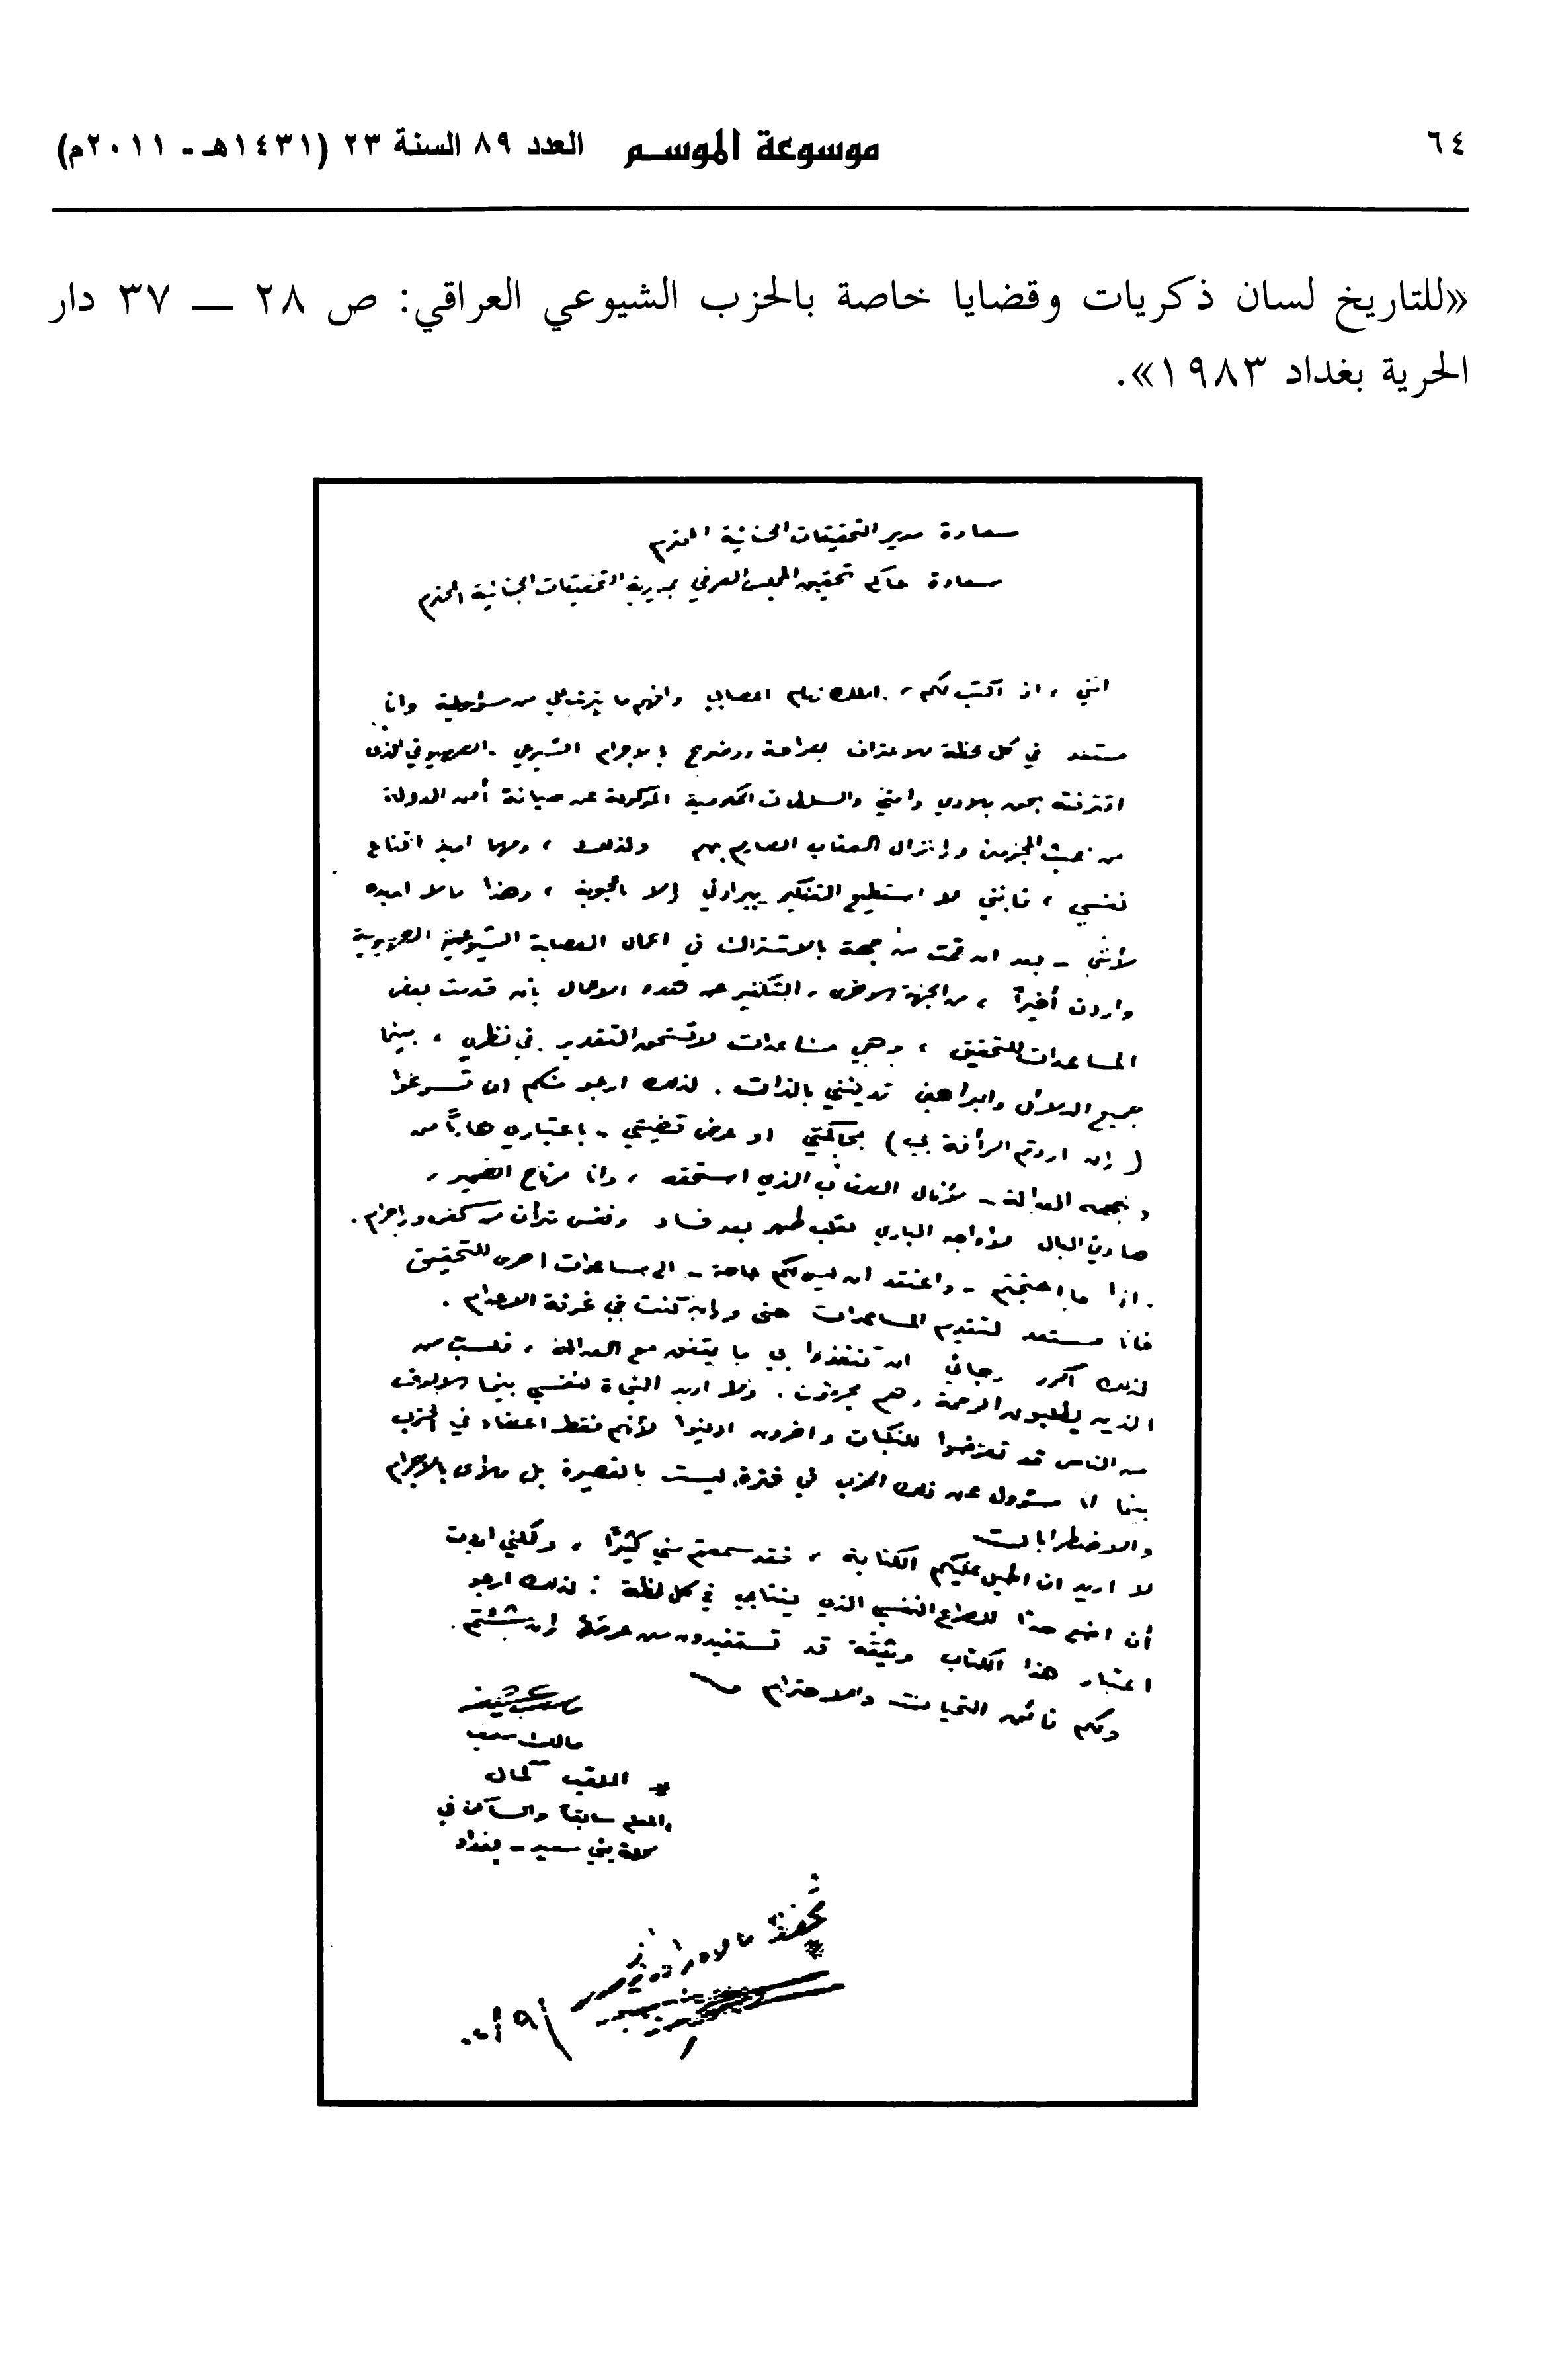 ٦٤ موسوعة الموسم العدد ٨٩ السنة ٢٣ (١٤٣١هـ - ٢٠١١م)
«للتاريخ لسان ذكريات وقضايا خاصة بالحزب الشيوعي العراقي: ص ٢٨ — ٣٧ دار
الحرية بغداد ١٩٨٣».
سعادة مدير التحقيقات الجنائية المحترم
سعادة حاكم تحقيق المجلس العرفي بمديرية التحقيقات الجنائية المحترم
انني ، اذ اكتب لكم ، املك زمام اعصابي وافهم ما يترتب علي من مسؤولية وانا
مستعد في كل لحظة للاعتراف بصراحة ووضوح بالاجرام الشيوعي - الصهيوني الذي
اقترفته بحق بلادي وامتي والسلطات الحكومية الموكولة عن صيانة أمن الدولة
من عبث المجرمين وإنزال العقاب الصارم بهم ولذلك ، ومهما اعيد اقناع
نفسي ، فإنني لا استطيع التفكير ، وهذا ما لا اريده
لأنني - بعد ان قمت من جهة بالاشتراك في اعمال العصابة الشيوعية الصهيونية
واردت أخيراً ، من الجهة الاخرى ، التكفير عن هذه الاعمال بأن قدمت بعض
المساعدات للتحقيق ، وهي مساعدات لا تستحق التقدير في نظري ، بينما
جميع الدلائل والبراهين تدينني بالذات . لذلك ارجو منكم ان
( إن اردتم الرأفة بي ) بمحاكمتي او عرض قضيتي - باعتباري من
العدالة - لأنال العقاب الذي استحقه ، وانا مرتاح الضمير ،
البال لأواجه الباري بقلب طهر بعد فساد ونفس تبرأت من كفر واجرام .
اذا ما احتجتم - واعتقد ان ليس لكم حاجة - الى مساعدات اخرى للتحقيق
فانا مستعد لتقديم المساعدات حتى وإن كنت في غرفة الاعدام .
لذلك اكرر رجائي ان تنفذوا بي ما يتفق مع العدالة ، فلست من
الذين يطلبون الرحمة وهم مجرمون . ولا اريد النجاة لنفسي بينما الالوف
من الناس قد تعرضوا للنكبات وآخرون ادينوا لأنهم فقط اعضاء في الحزب
بينما انا مسؤول عن ذلك الحزب في فترة ليست بالقصيرة بل ملأى بالاجرام
والاضطرابات
لا اريد ان اطيل عليكم الكتابة ، فقد سمعتم مني كثيراً ، ولكنني اردت
أن اضع حدا للصراع النفسي الذي ينتابني في كل لحظة : لذلك ارجو
اعتبار هذا الكتاب وثيقة قد تستفيدون من عرضها إن شئتم .
ولكم فائق التحيات والاحترام
مالك سيف
الملقب كمال
والمعلم سابقا والساكن في
محلة بني سعيد - بغداد